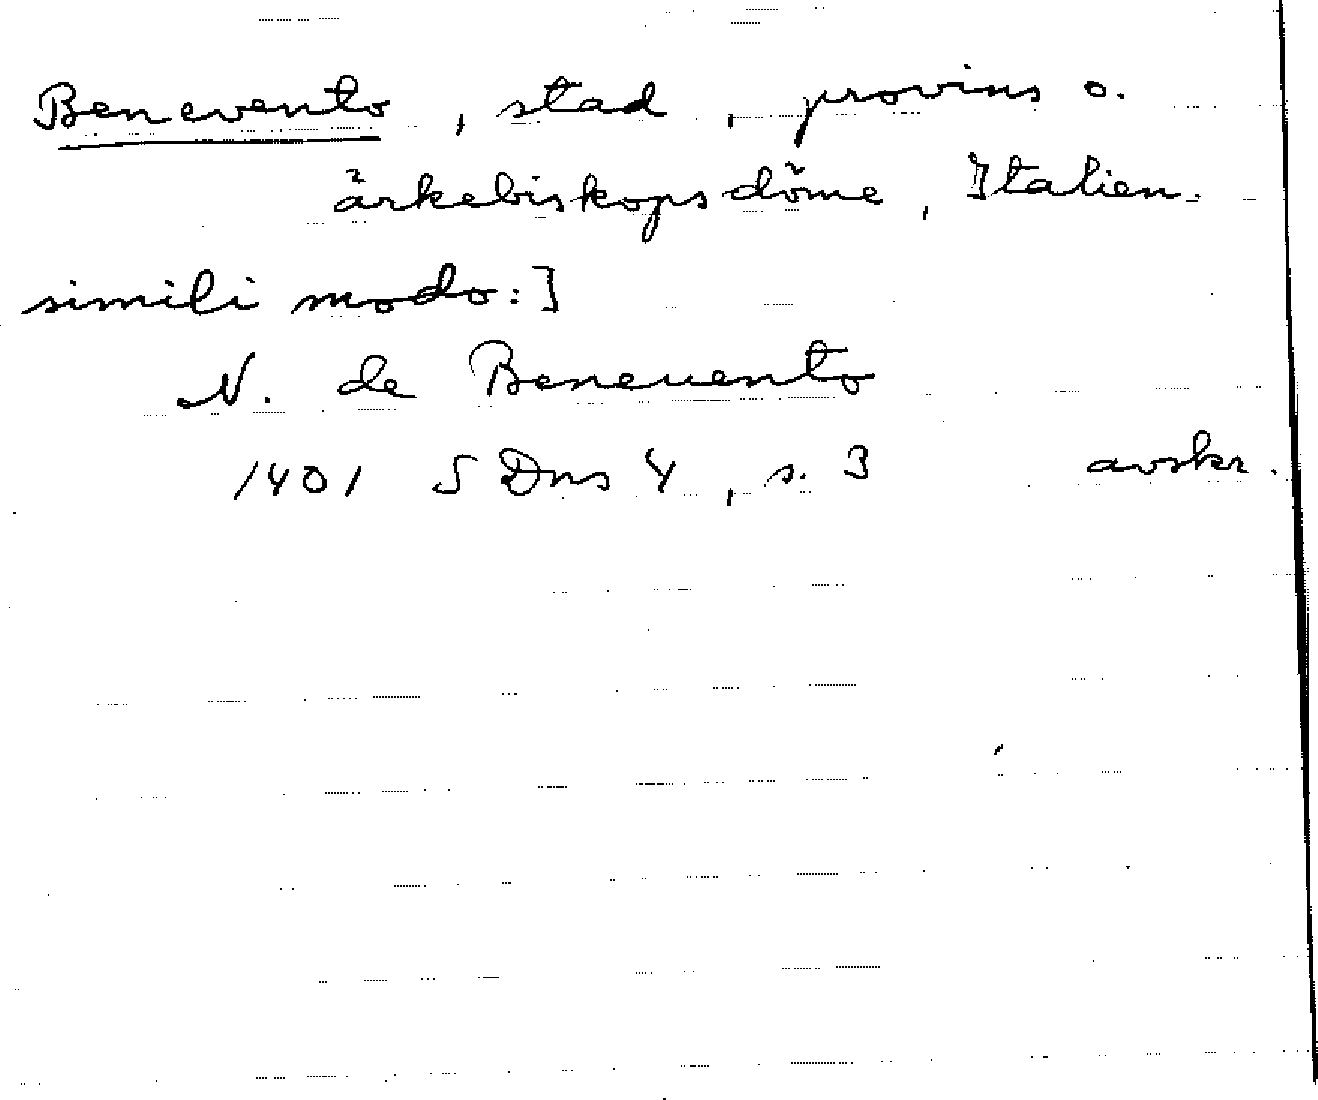 Benevento, stad, provins o.
ärkebiskopsdöme, Italien.
simili modo:]
N. de Beneuento
1401 5 Dns 4, s. 3 avskr.